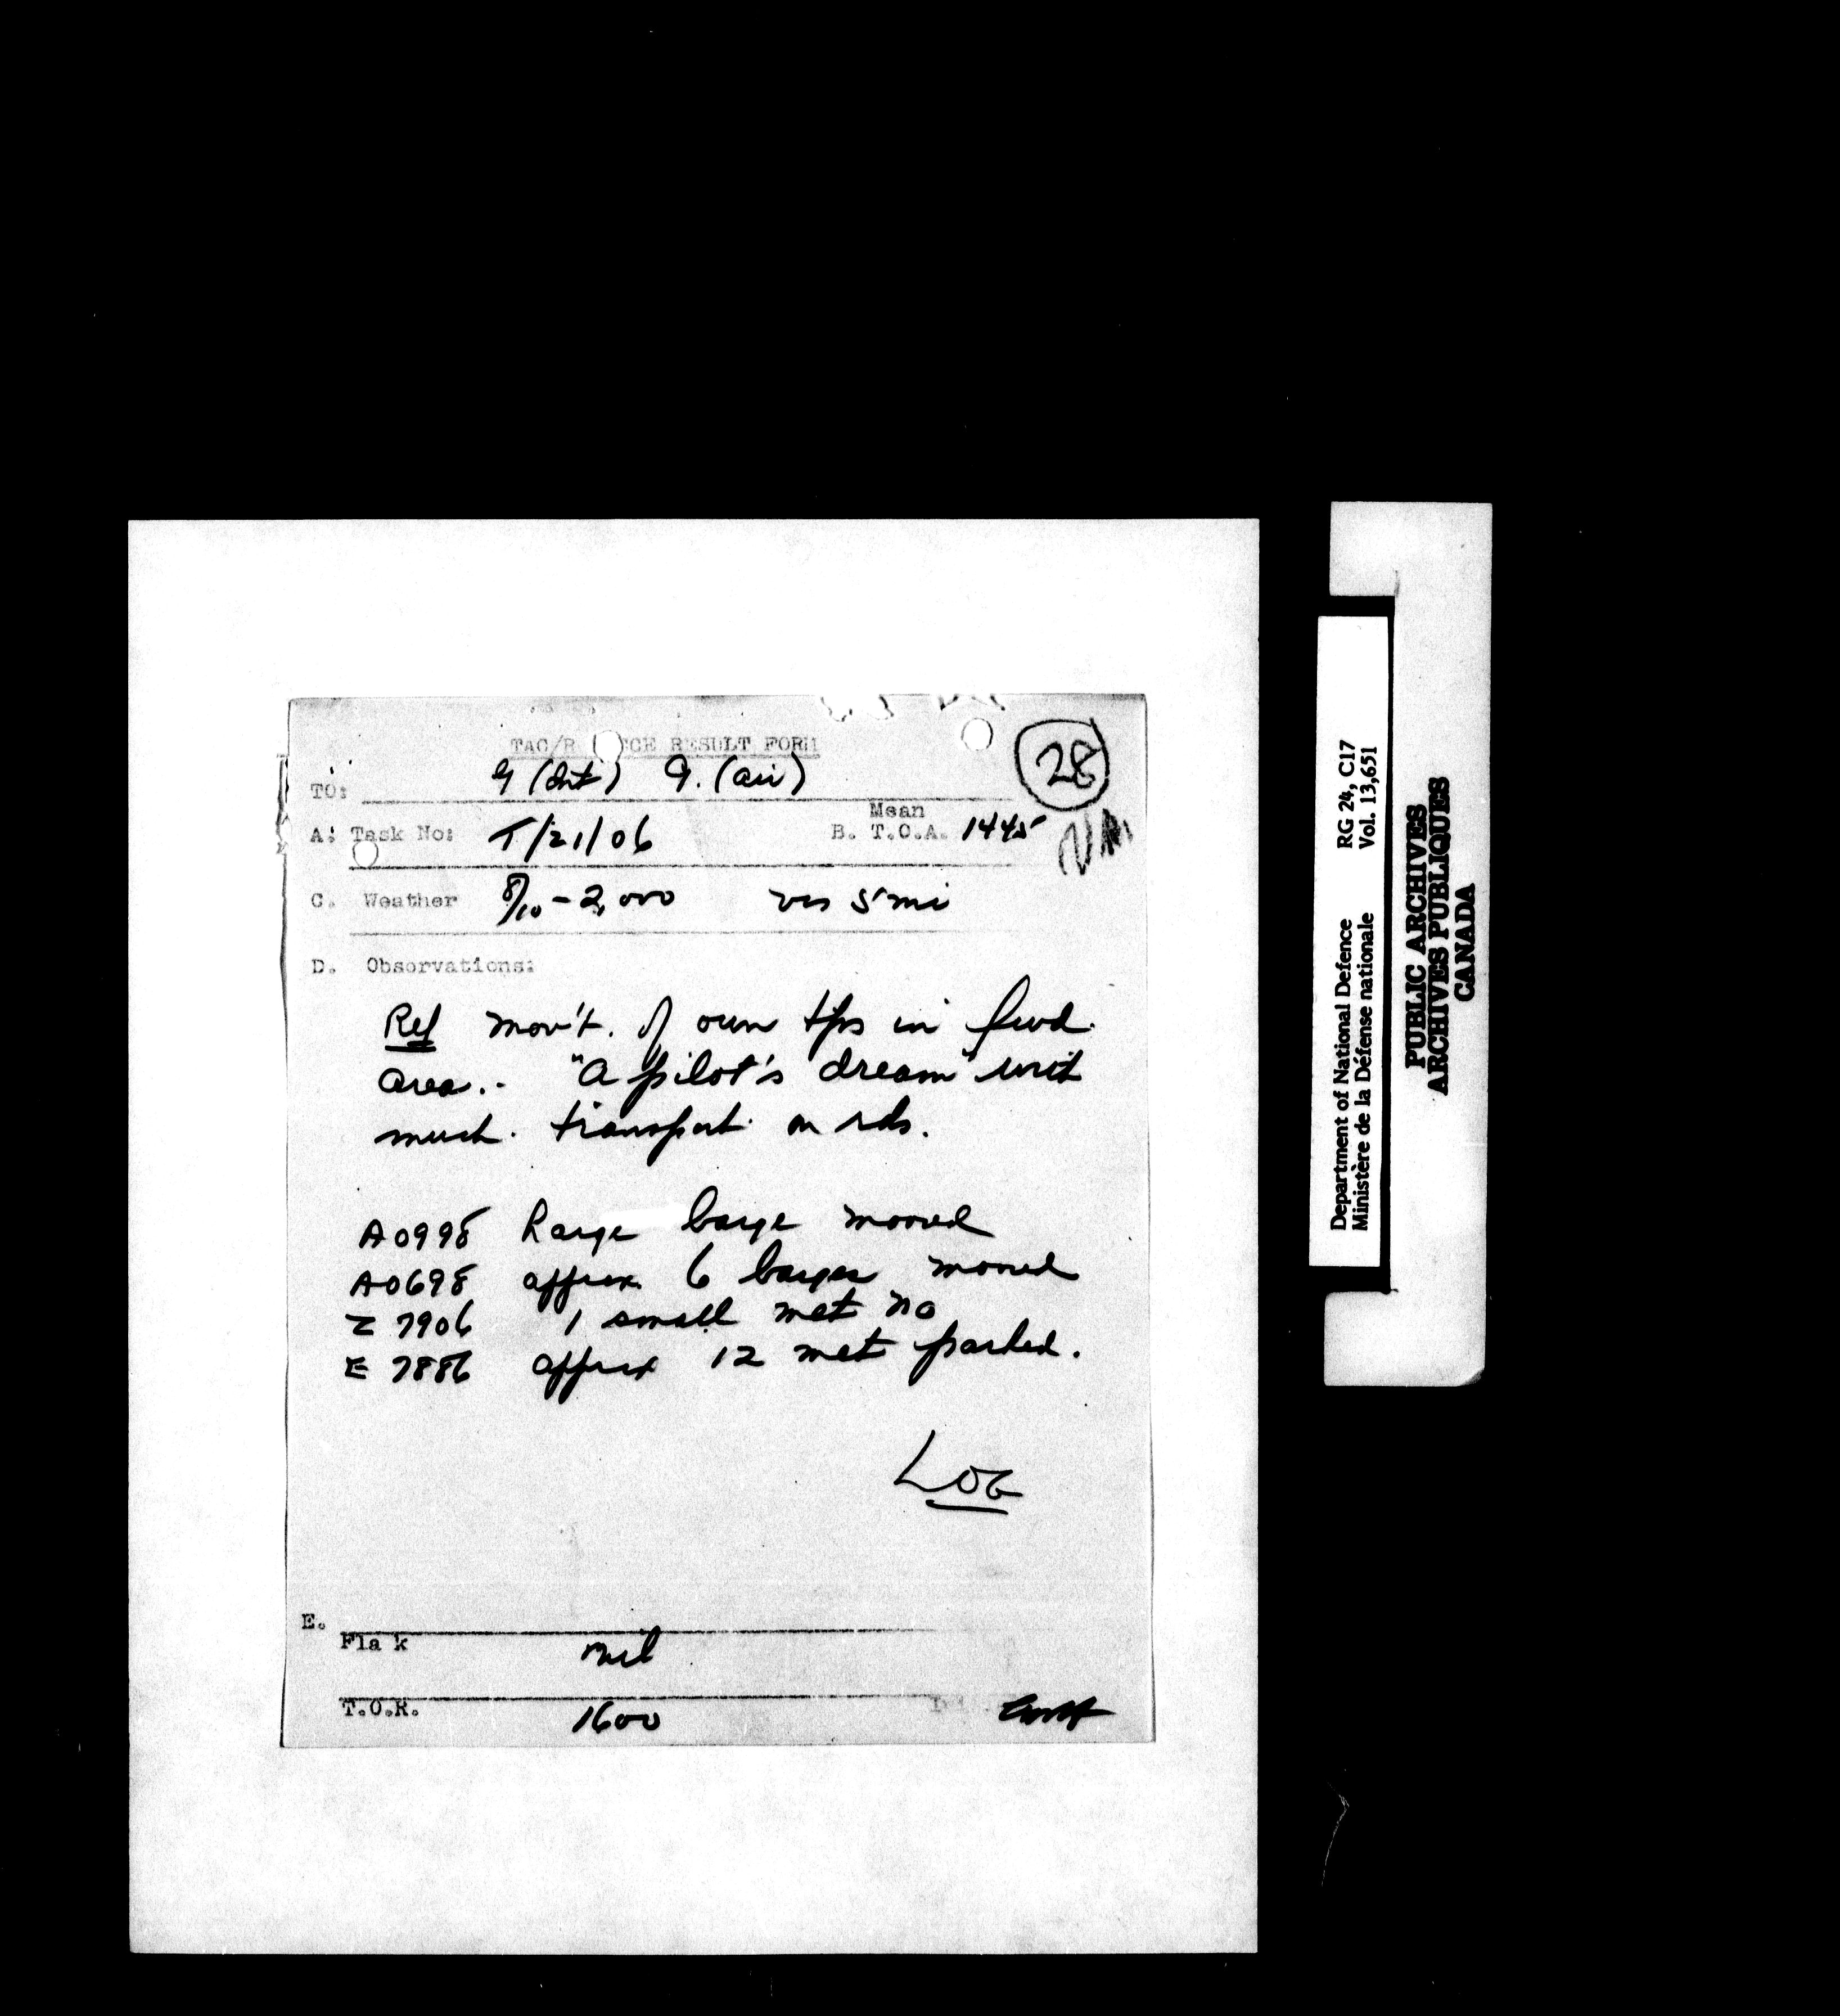 TAC/R CE RESULT FORM
28
TO: G (Int) G. (air)
A. Task No: T/21/06
Mean
B. T.O.A. 1445
C. Weather 8/10 - 2,000 vis 5 mi
D. Observations:
Ref mov't. of own tps in fwd.
area.- "A pilot's dream" with
much. transport on rds.
A0998 Large barge moored
A0698 approx. 6 barges moored
Z 7906 1 small met no
E 7886 approx 12 met parked.
LOG
E.
Fla k nil
T.O.R. 1600
Department of National Defence RG 24, C17
Ministère de la Défense nationale Vol. 13,651
PUBLIC ARCHIVES
ARCHIVES PUBLIQUES
CANADA